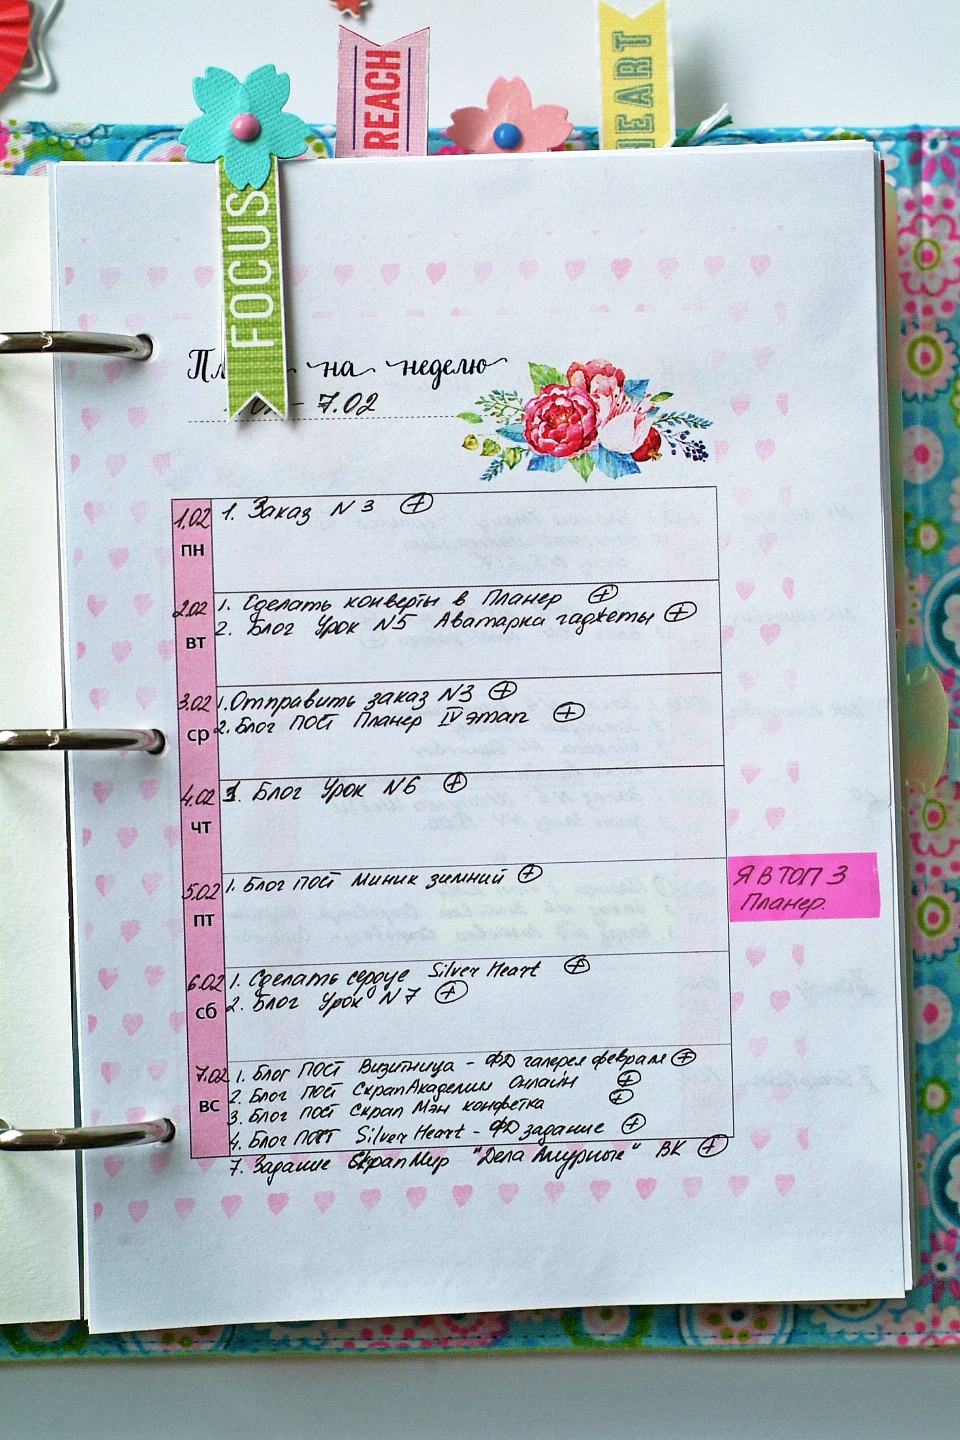 REACH
HEART
FOCUS
на неделю
- 7.02
1.02 1. Заказ N 3 +
пн
2.02 1. Сделать конверты в Планер +
вт 2. Блог Урок N5 Аватарка гаджеты +
3.02 1. Отправить заказ N3 +
ср 2. Блог пост Планер IV этап +
4.02 1. Блог Урок N6 +
чт
5.02 1. Блог пост Миник зимний +
пт
Я В ТОП 3
Планер.
6.02 1. Сделать сердце Silver Heart +
сб 2. Блог Урок N7 +
7.02 1. Блог пост Визитница - ФД галерея февраля +
вс 2. Блог пост СкрапАкадемии Онлайн +
3. Блог пост Скрап Мэн конфетка +
4. Блог пост Silver Heart - ФД задание +
7. Задание СкрапМир "Дела Амурные" ВК +